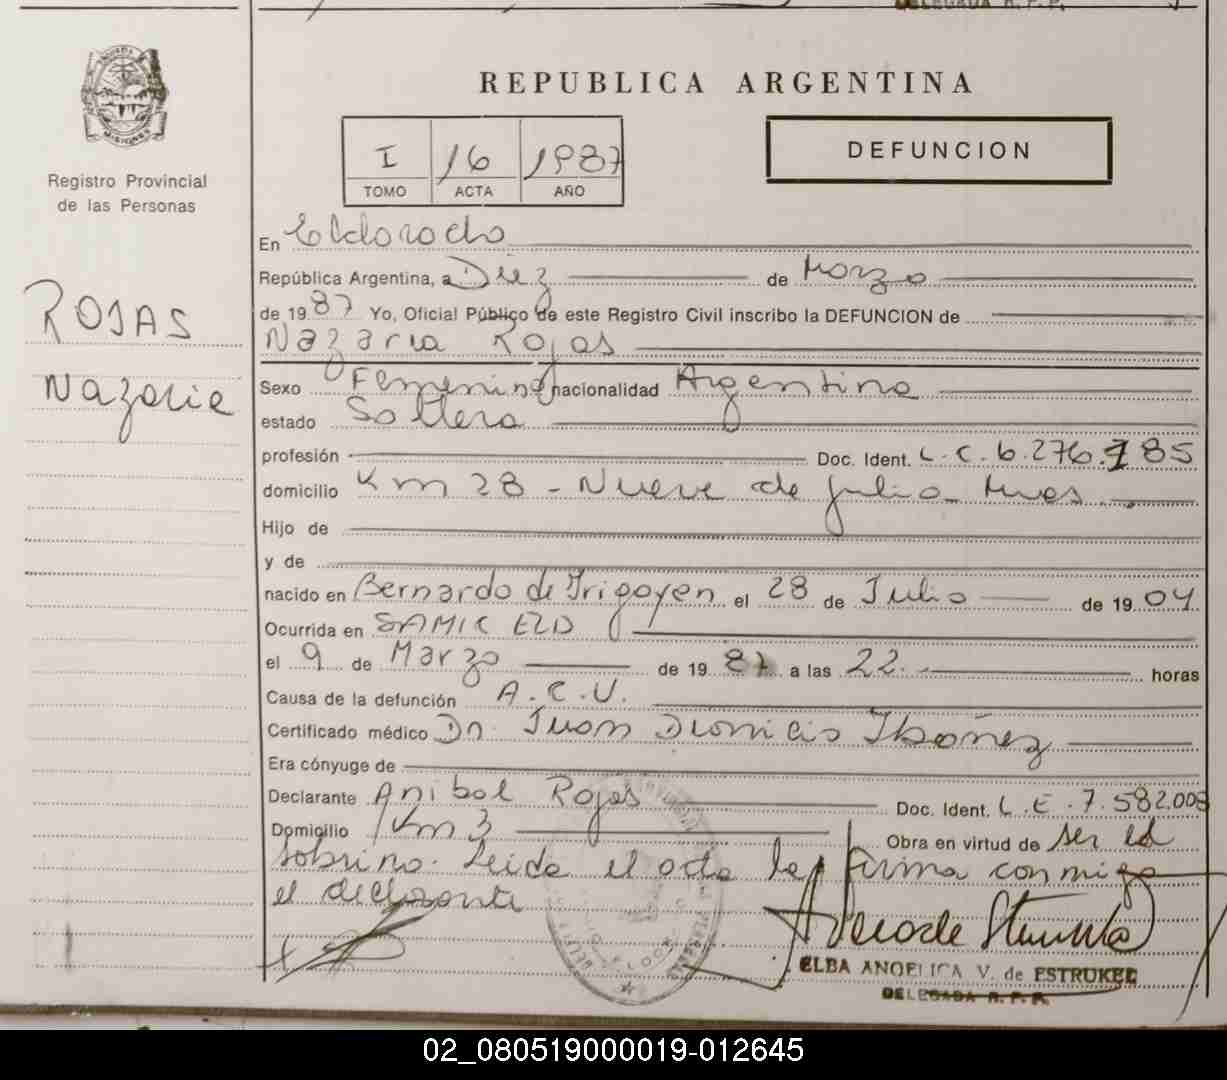 REPUBLICA ARGENTINA
MISIONES
Registro Provincial
de las Personas
I 16 1987
TOMO ACTA AÑO
DEFUNCION
ROJAS
Nazaria
En Eldorado
República Argentina, a Diez de Marzo
de 1987 Yo, Oficial Público de este Registro Civil inscribo la DEFUNCION de
Nazaria Rojas
Sexo Femenino nacionalidad Argentina
estado Soltera
profesión Doc. Ident. L.C. 6.276.785
domicilio Km 28 - Nueve de Julio Mnes.
Hijo de
y de
nacido en Bernardo de Irigoyen el 28 de Julio de 1904
Ocurrida en SAMIC ELD
el 9 de Marzo de 1987 a las 22 horas
Causa de la defunción A.C.V.
Certificado médico Dr. Juan Dionicio Ibañez
Era cónyuge de
Declarante Anibal Rojas Doc. Ident. L.E. 7.582.008
Domicilio Km 3 Obra en virtud de ser el
sobrino. Leida el acta la firma conmigo
el declarante
ELBA ANGELICA V. de ESTRUKEL
DELEGADA R. P. P.
02_080519000019-012645